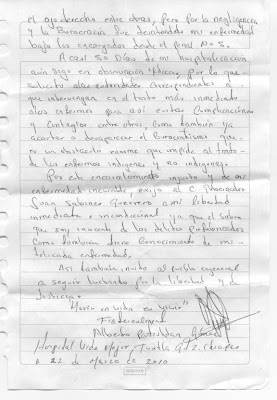 el ojo derecho entre otras, pero por la negligencia
y la Burocracia fue decayendo mi enfermedad
bajo los encargados desde el penal No 5.
A casi 50 Días de mi hospitalización
aún sigo en observación Médica, por lo que
solicito alas autoridades correspondientes a
que intervengan en el trato más inmediato
alos enfermos para así evitar Complicaciones
y Contagios entre otros como también ya
acortar o desaparecer el Burocratismo que
es un obstáculo enorme que impide al trato
de los enfermos indígenas y no indígenas.
Por este encarcelamiento injusto y de mi
enfermedad incurable, exijo al C. Gobernador
Juan Sabines Guerrero a mi libertad
inmediata e incondicional ya que el sabe
que soy inocente de los delitos
Como también tiene Conocimiento de mi
delicada enfermedad.
Así también invito al pueblo en general
a seguir luchando por la libertad y la
Justicia.
"Morir en vida es vivir"
Fraternalmente
Alberto Patishtan Gómez
Hospital Vida Mejor, Tuxtla Gtz. Chiapas
a 21 de Marzo de 2010